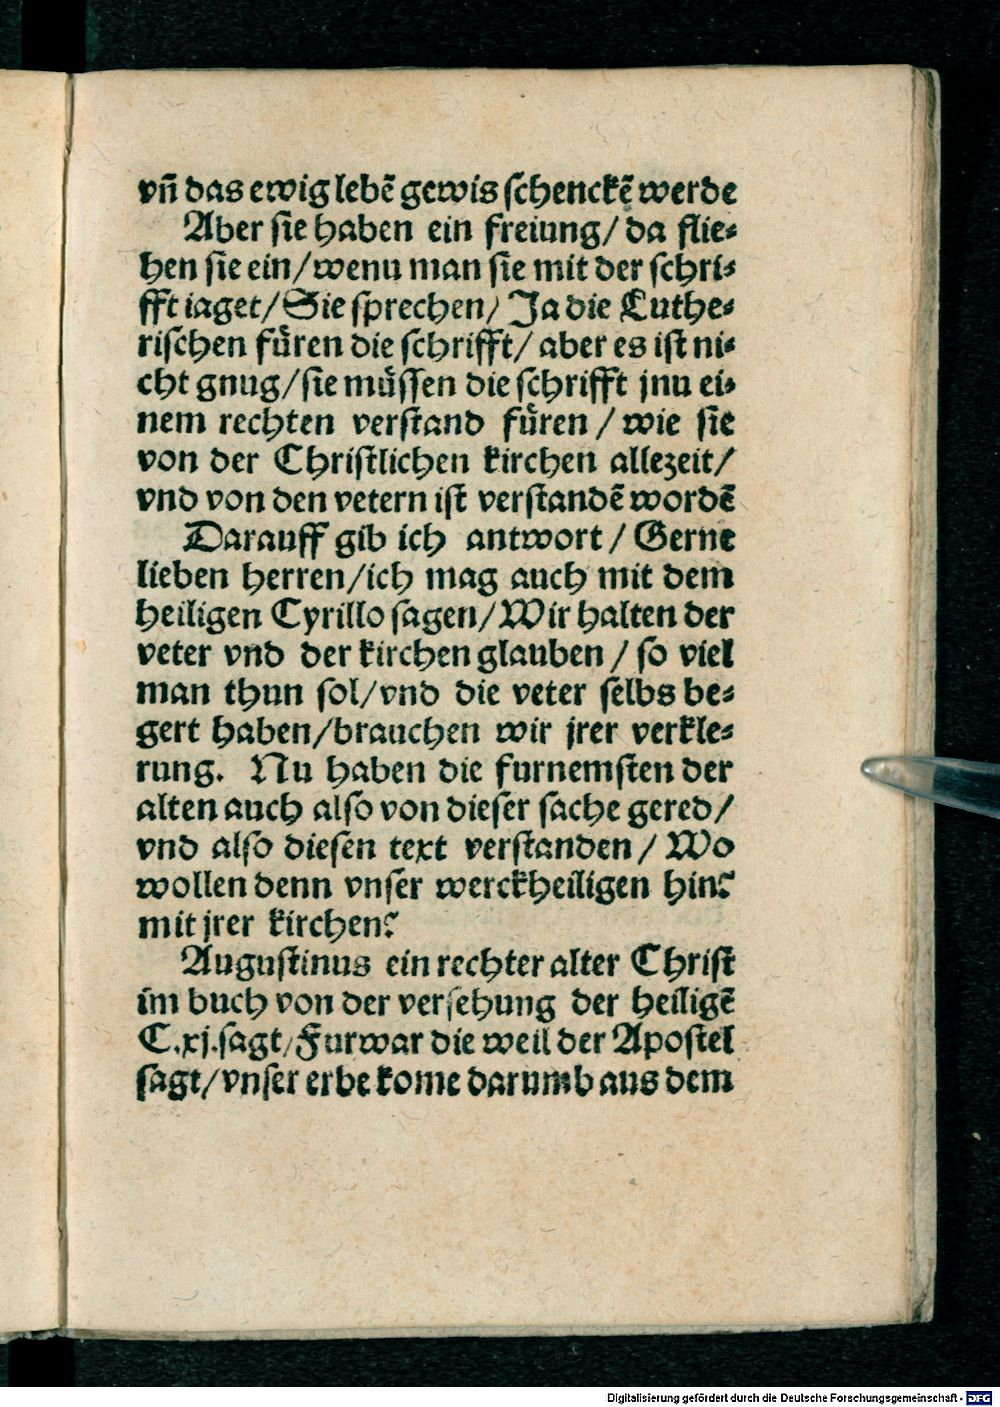 vñ das ewig lebē gewis schenckē werde
Aber sie haben ein freiung/ da flie-
hen sie ein/ wenu man sie mit der schri-
fft iaget/ Sie sprechen/ Ja die Luthe-
rischen fuͤren die schrifft/ aber es ist ni-
cht gnug/ sie muͤssen die schrifft jnu ei-
nem rechten verstand fuͤren / wie sie
von der Christlichen kirchen allezeit/
vnd von den vetern ist verstandē wordē
Darauff gib ich antwort / Gerne
lieben herren/ ich mag auch mit dem
heiligen Cyrillo sagen/ Wir halten der
veter vnd der kirchen glauben / so viel
man thun sol/ vnd die veter selbs be-
gert haben/ brauchen wir jrer verkle-
rung. Nu haben die furnemsten der
alten auch also von dieser sache gered/
vnd also diesen text verstanden / Wo
wollen denn vnser werckheiligen hin?
mit jrer kirchen?
Augustinus ein rechter alter Christ
im buch von der versehung der heiligē
C.xj. sagt/ Furwar die weil der Apostel
sagt/ vnser erbe kome darumb aus dem
Digitalisierung gefördert durch die Deutsche Forschungsgemeinschaft - DFG